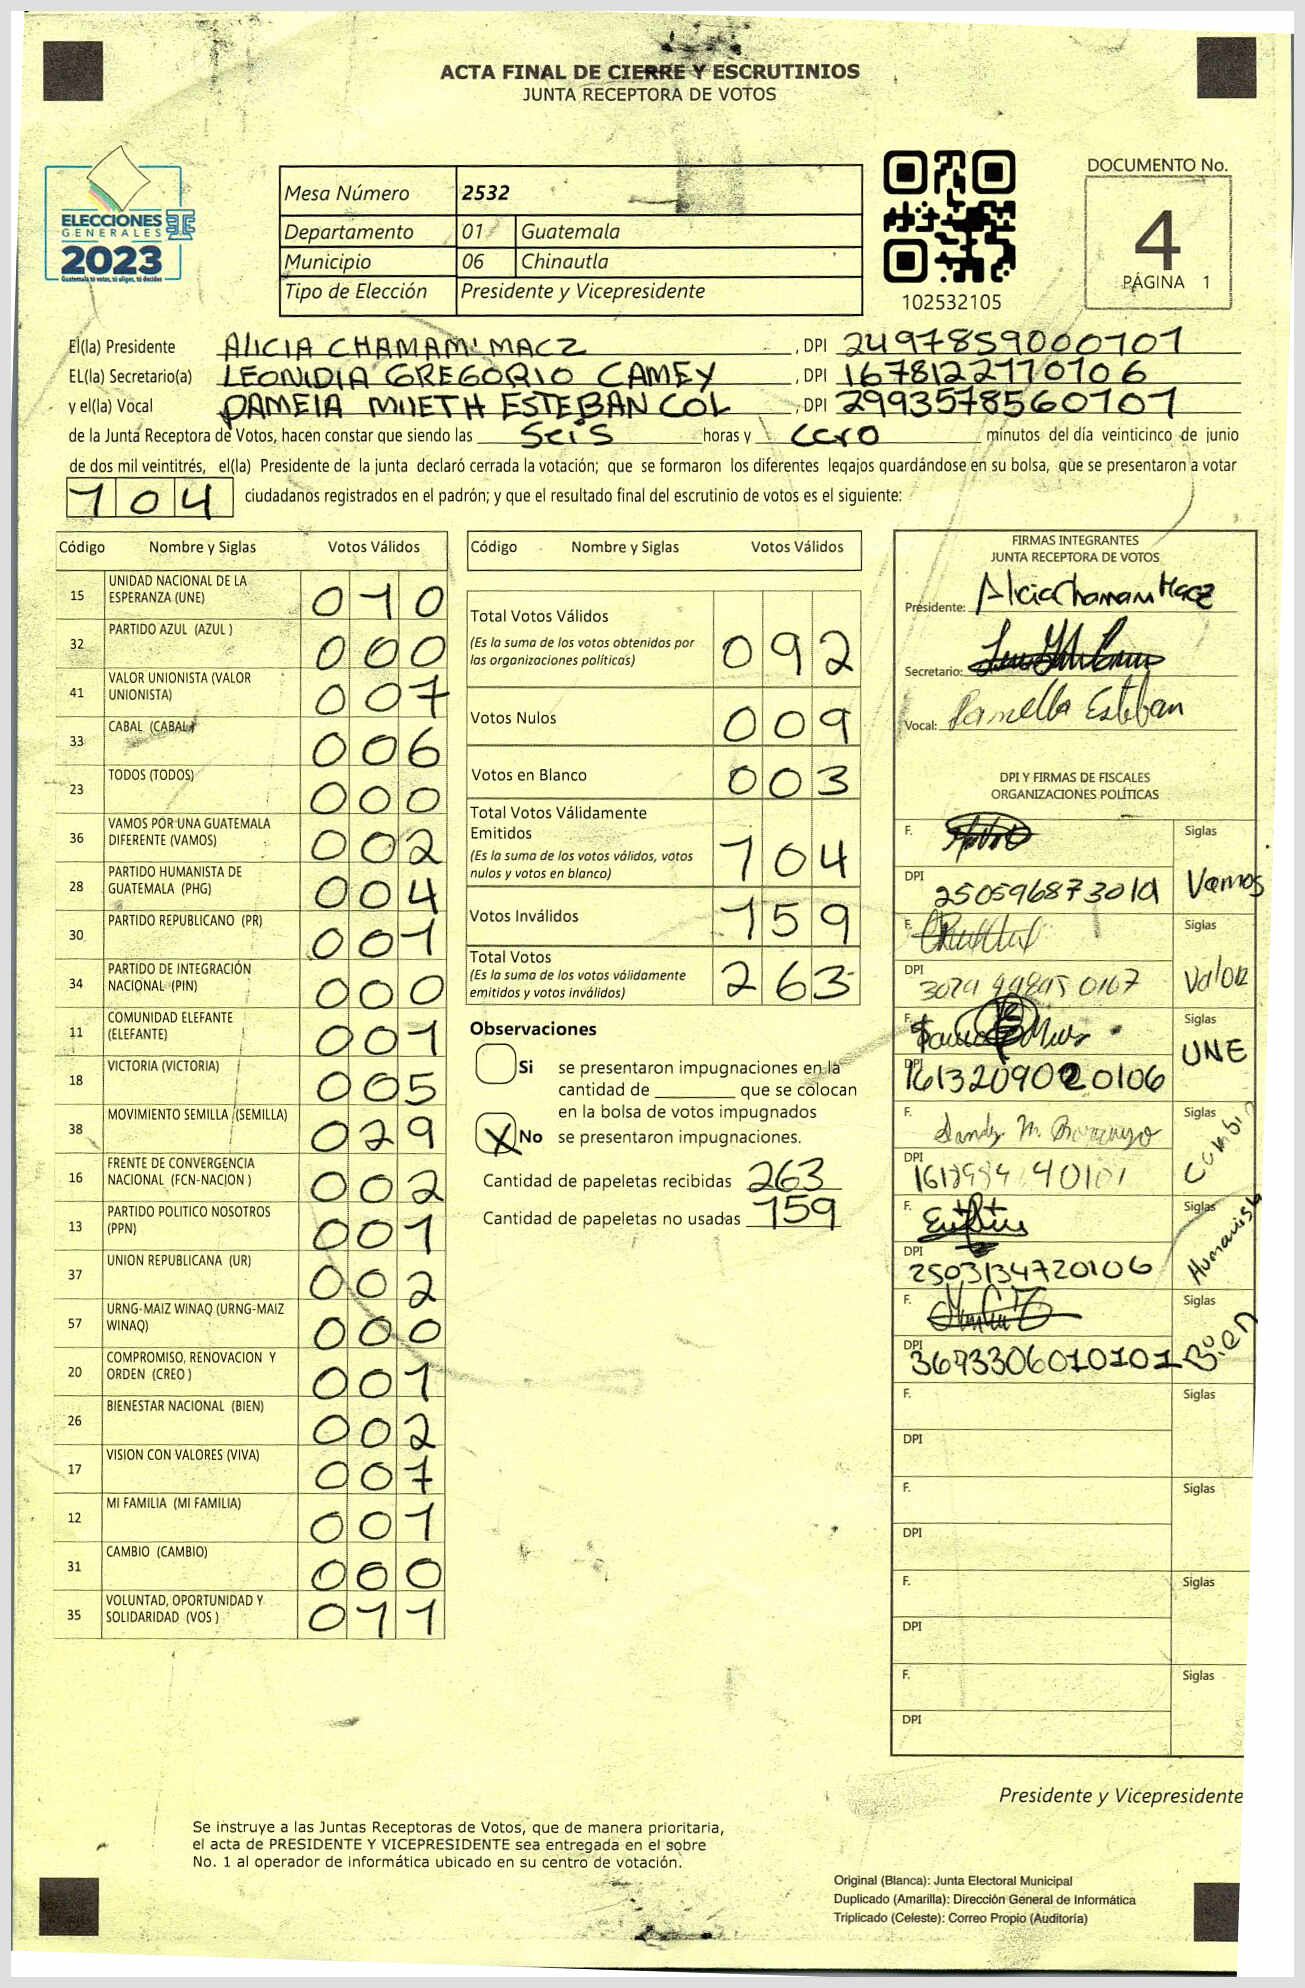 ACTA FINAL DE CIERRE Y ESCRUTINIOS
JUNTA RECEPTORA DE VOTOS
ELECCIONES
GENERALES
2023
Guatemala tú votas, tú eliges, tú decides
Mesa Número 2532
Departamento 01 Guatemala
Municipio 06 Chinautla
Tipo de Elección Presidente y Vicepresidente
102532105
DOCUMENTO No.
4
PÁGINA 1
El(la) Presidente ALICIA CHAMAM MACZ , DPI 2497859000101
EL(la) Secretario(a) LEONIDIA GREGORIO CAMEY , DPI 1678122170106
y el(la) Vocal PAMELA ESTEBAN COL , DPI 2993578560101
de la Junta Receptora de Votos, hacen constar que siendo las seis horas y cero minutos del día veinticinco de junio
de dos mil veintitrés, el(la) Presidente de la junta declaró cerrada la votación; que se formaron los diferentes legajos guardándose en su bolsa, que se presentaron a votar
104 ciudadanos registrados en el padrón; y que el resultado final del escrutinio de votos es el siguiente:
Código Nombre y Siglas Votos Válidos
15 UNIDAD NACIONAL DE LA ESPERANZA (UNE) 010
32 PARTIDO AZUL (AZUL ) 000
41 VALOR UNIONISTA (VALOR UNIONISTA) 007
33 CABAL (CABAL) 006
23 TODOS (TODOS) 000
36 VAMOS POR UNA GUATEMALA DIFERENTE (VAMOS) 002
28 PARTIDO HUMANISTA DE GUATEMALA (PHG) 004
30 PARTIDO REPUBLICANO (PR) 001
34 PARTIDO DE INTEGRACIÓN NACIONAL (PIN) 000
11 COMUNIDAD ELEFANTE (ELEFANTE) 001
18 VICTORIA (VICTORIA) 005
38 MOVIMIENTO SEMILLA (SEMILLA) 029
16 FRENTE DE CONVERGENCIA NACIONAL (FCN-NACION ) 002
13 PARTIDO POLITICO NOSOTROS (PPN) 001
37 UNION REPUBLICANA (UR) 002
57 URNG-MAIZ WINAQ (URNG-MAIZ WINAQ) 000
20 COMPROMISO, RENOVACION Y ORDEN (CREO ) 001
26 BIENESTAR NACIONAL (BIEN) 002
17 VISION CON VALORES (VIVA) 007
12 MI FAMILIA (MI FAMILIA) 001
31 CAMBIO (CAMBIO) 000
35 VOLUNTAD, OPORTUNIDAD Y SOLIDARIDAD (VOS ) 011
Código Nombre y Siglas Votos Válidos
Total Votos Válidos 092
(Es la suma de los votos obtenidos por las organizaciones políticas)
Votos Nulos 009
Votos en Blanco 003
Total Votos Válidamente Emitidos 104
(Es la suma de los votos válidos, votos nulos y votos en blanco)
Votos Inválidos 159
Total Votos 263
(Es la suma de los votos válidamente emitidos y votos inválidos)
Observaciones
Si se presentaron impugnaciones en la
cantidad de ________ que se colocan
en la bolsa de votos impugnados
X No se presentaron impugnaciones.
Cantidad de papeletas recibidas 263
Cantidad de papeletas no usadas 159
FIRMAS INTEGRANTES
JUNTA RECEPTORA DE VOTOS
Presidente: Alicia Chamam Macz
Secretario:
Vocal: Pamella Esteban
DPI Y FIRMAS DE FISCALES
ORGANIZACIONES POLÍTICAS
F. Siglas
DPI Vamos
F. Siglas
DPI Valor
F. Siglas
DPI 1613209020106 UNE
F. Sandy M. Siglas
DPI Cambio
F. Siglas
DPI 2503134720106 Humanista
F. Siglas
DPI 3693306010101 Bien
F. Siglas
DPI
F. Siglas
DPI
F. Siglas
DPI
F. Siglas
DPI
Presidente y Vicepresidente
Se instruye a las Juntas Receptoras de Votos, que de manera prioritaria,
el acta de PRESIDENTE Y VICEPRESIDENTE sea entregada en el sobre
No. 1 al operador de informática ubicado en su centro de votación.
Original (Blanca): Junta Electoral Municipal
Duplicado (Amarilla): Dirección General de Informática
Triplicado (Celeste): Correo Propio (Auditoría)